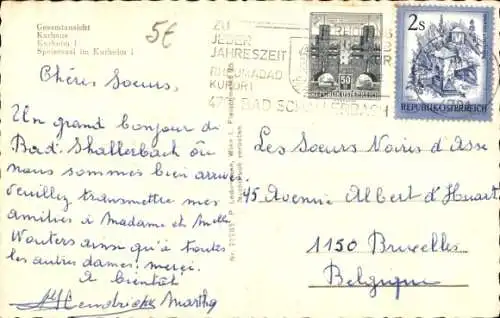 Gesamtansicht
Kurhaus
Kurheim I
Speisesaal im Kurheim I
5€
ZU
JEDER
JAHRESZEIT
RHEUMABAD
KURORT
4701 BAD SCHALLERBACH
50
REPUBLIK ÖSTERREICH
2s
REPUBLIK ÖSTERREICH
Chères Soeurs,
Un grand bonjour de
Bad Shallerbach où
nous sommes bien arrivé
veuillez transmettre mes
amitiés à Madame et Melle
Wouters ainsi qu'à toutes
les autres dames, merci.
A bientôt
Hendrickx Martha
Les Soeurs Noires d'Asse
45 Avenue Albert d'Huart
1150 Bruxelles
Belgique
Nachdruck verboten